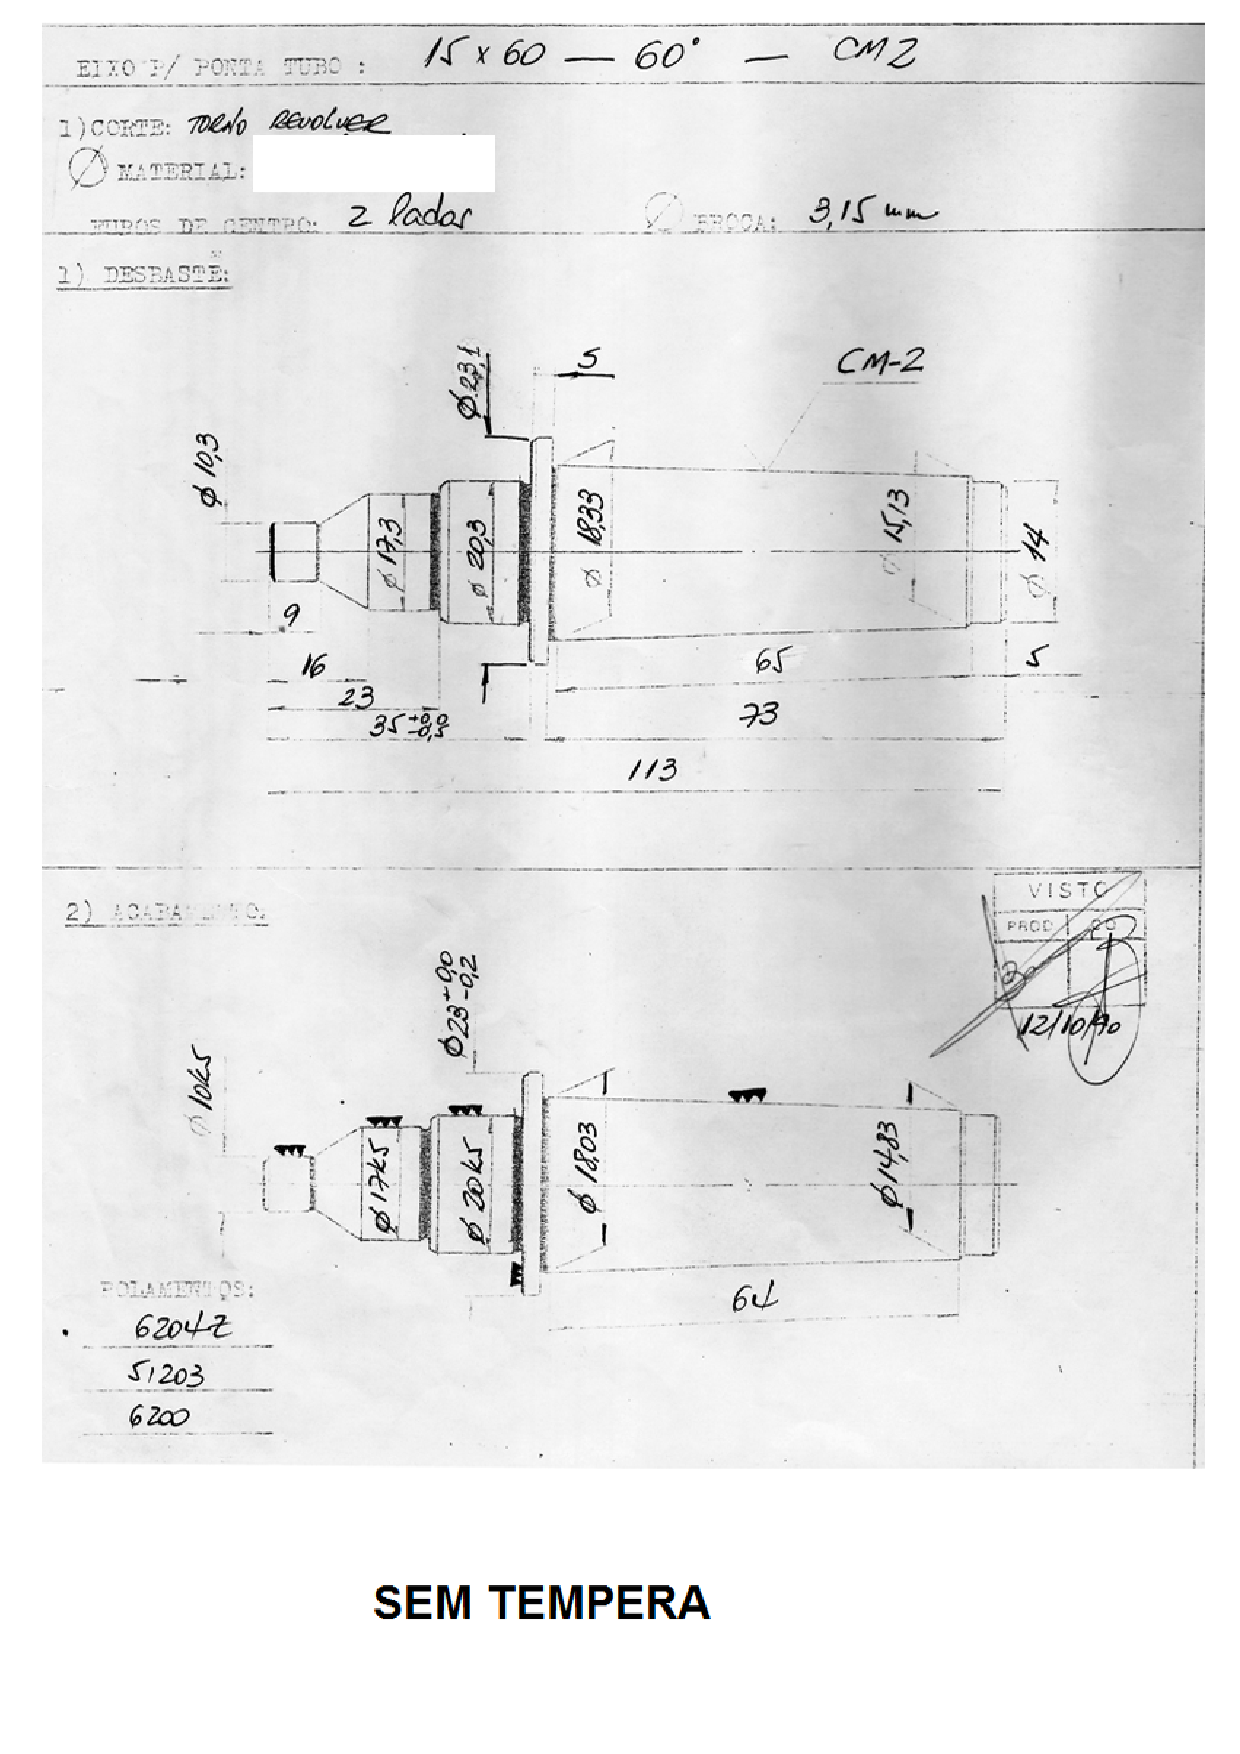 EIXO P/ PONTA TUBO : 15 x 60 — 60° — CM2
1)CORTE: TORNO REVOLVER
Ø MATERIAL:
FUROS DE CENTRO: 2 lados Ø BROCA: 3,15 mm
1) DESBASTE:
Ø 23,1
5
CM-2
Ø 10,3
Ø 17,3
Ø 20,3
Ø 18,33
Ø 15,13
Ø 14
9
16
65
5
23
35 +0,0 -0,5
73
113
2) ACABAMENTO:
VISTO
PROD CQ
12/10/90
Ø23 +0,0 -0,2
Ø 10k5
Ø 17k5
Ø 20k5
Ø 18,03
Ø 14,83
64
ROLAMENTOS:
6204Z
51203
6200
SEM TEMPERA